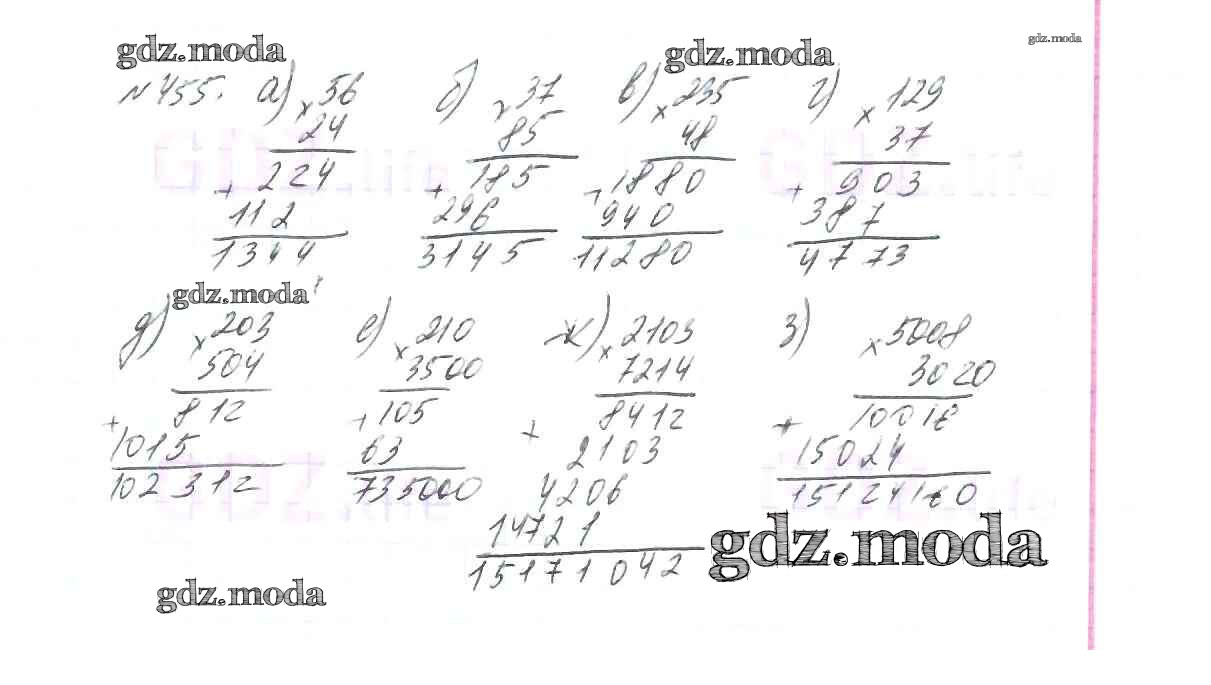 gdz.moda gdz.moda gdz.moda
№455. а) × 56 б) × 37 в) × 235 г) × 129
24 85 48 37
+ 224 + 185 + 1880 + 903
112 296 940 387
1344 3145 11280 4773
gdz.moda
д) × 203 е) × 210 ж) × 2103 з) × 5008
504 3500 7214 3020
+ 812 + 105 + 8412 + 10016
1015 63 2103 15024
102312 735000 4206 15124160
14721
15171042
gdz.moda
gdz.moda